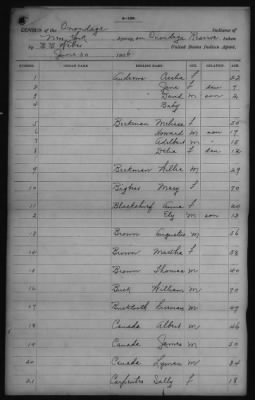 CENSUS of the Onondaga Indians of
New York Agency, on Onondaga Reserve taken
by United States Indian Agent,
June 30
NUMBER. INDIAN NAME. ENGLISH NAME. RELATION. AGE.
1 Andrews Celia F 22
2 Jane F dau 7
3 David M son 2
4 Baby
5 Beckman Melissa F 50
6 Howard M son 17
7 Adelbert M " 15
8 Delia F dau 12
9 Beckman Willie M 29
10 Bigbear Mary F 70
11 Anna F 20
Ely M son
13 Brown Augustus M 56
14 Brown Martha F 58
Brown Thomas M 40
16 Buck William M 70
17 M 49
18 Canada Albert M 46
19 Canada James M 50
20 Canada Lyman M 24
21 Carpenter Sally F 18